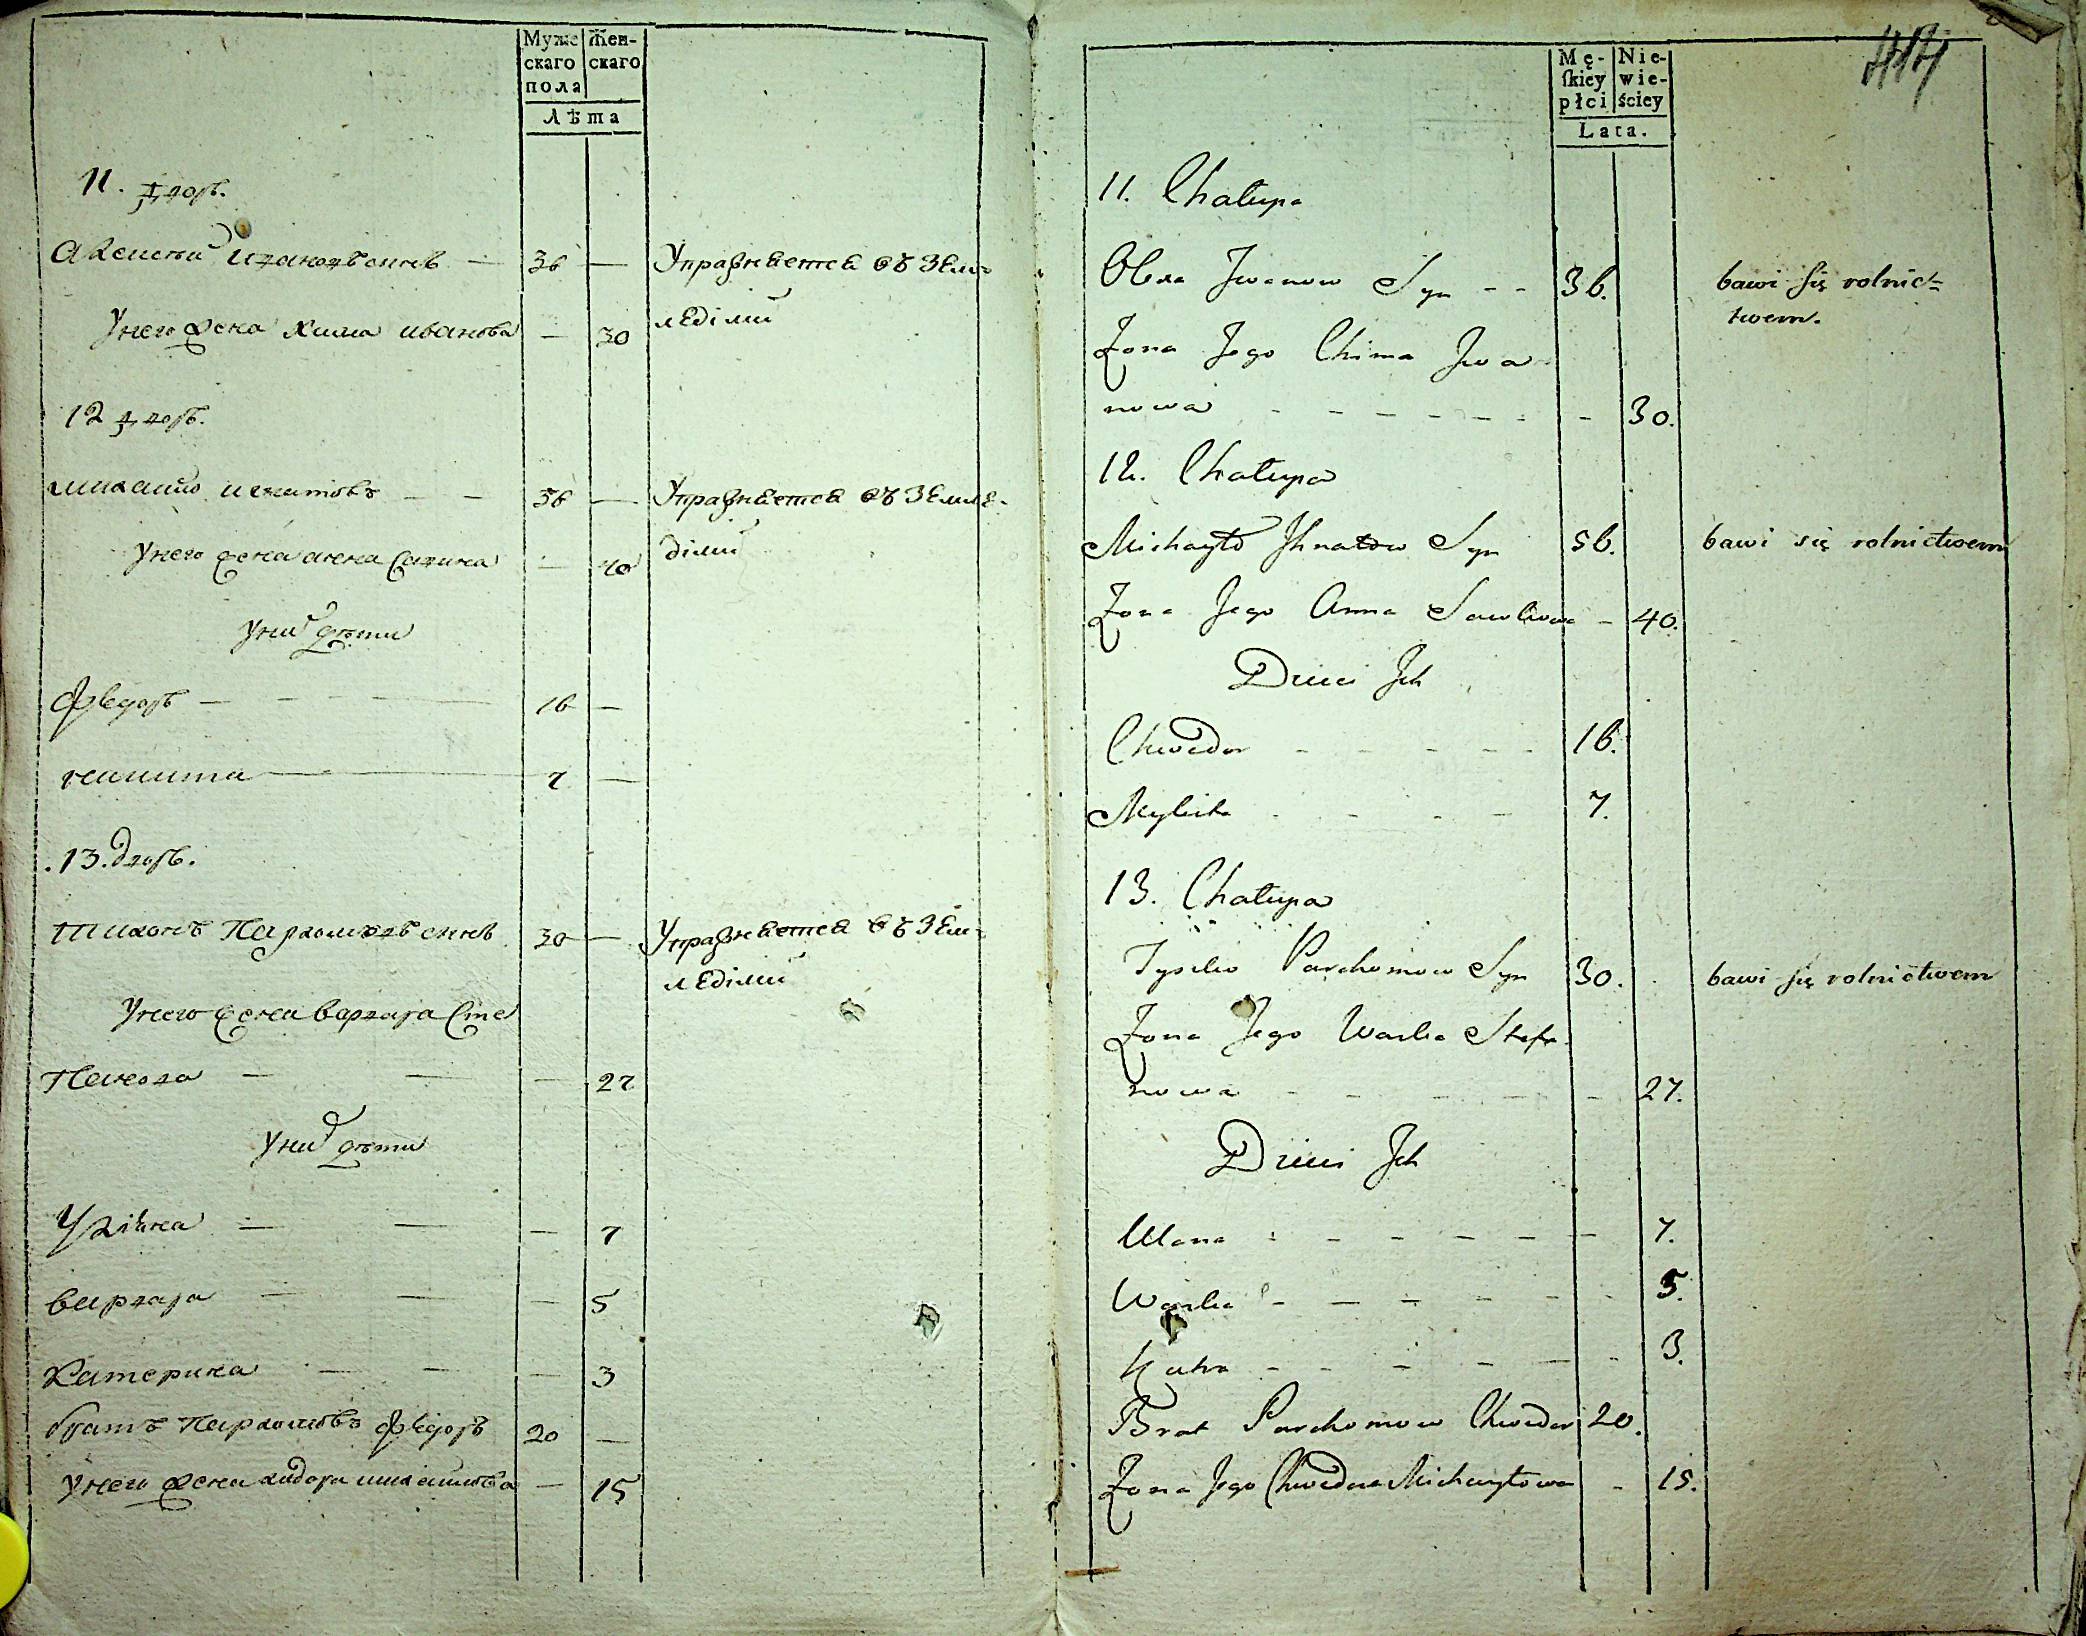 Муже
скаго
пола
Жен-
скаго
Лѣта
11. Дворъ.
36 — Упражняется въ Зем-
леділии
У него жена Хима иванова — 30
12 Дворъ.
михайло игнатовъ — — 56 — Упражняется въЗемле-
діліи
У него жена анна Савина — 40
У них дѣти
Федоръ — — — — 16 —
никита — 7 —
13. Дворъ.
Тихонъ Пархомовъ сынъ 30 — Упражняется въ Зем-
леділии
У него жена Варвара Сте
панова — — — 27
У них дѣти
Уліана — — — 7
Варвара — — — 5
Катерина — — — 3
братъ Пархомовъ Федоръ 20 —
У него жена михайлова — 15
Mę-
ſkiey
płci
Nie-
wie-
ściey
Lata.
11. Chałupa
Iwanow Syn - - 36. bawi się rolnic-
twem.
Zona Jego Chima Iwa-
nowa - - - - - - - 30.
12. Chałupa
Michayło Ihnatow Syn 56. bawi się rolnictwem
Zona Jego Anna Sawliowa - 40.
Dzieci Ich
Chwedor - - - - - 16.
Mykita - - - - 7.
13. Chałupa
Parchomow Syn 30. bawi się rolnictwem
Zona Jego Warka Stefa-
nowa - - - - - - 27.
Dzieci Ich
Ulana - - - - - - 7.
Warka - - - - - - 5.
- - - - - - 3.
Brat Parchomow Chwedor 20.
Zona Jego Chwedora Michayłowa - 15.